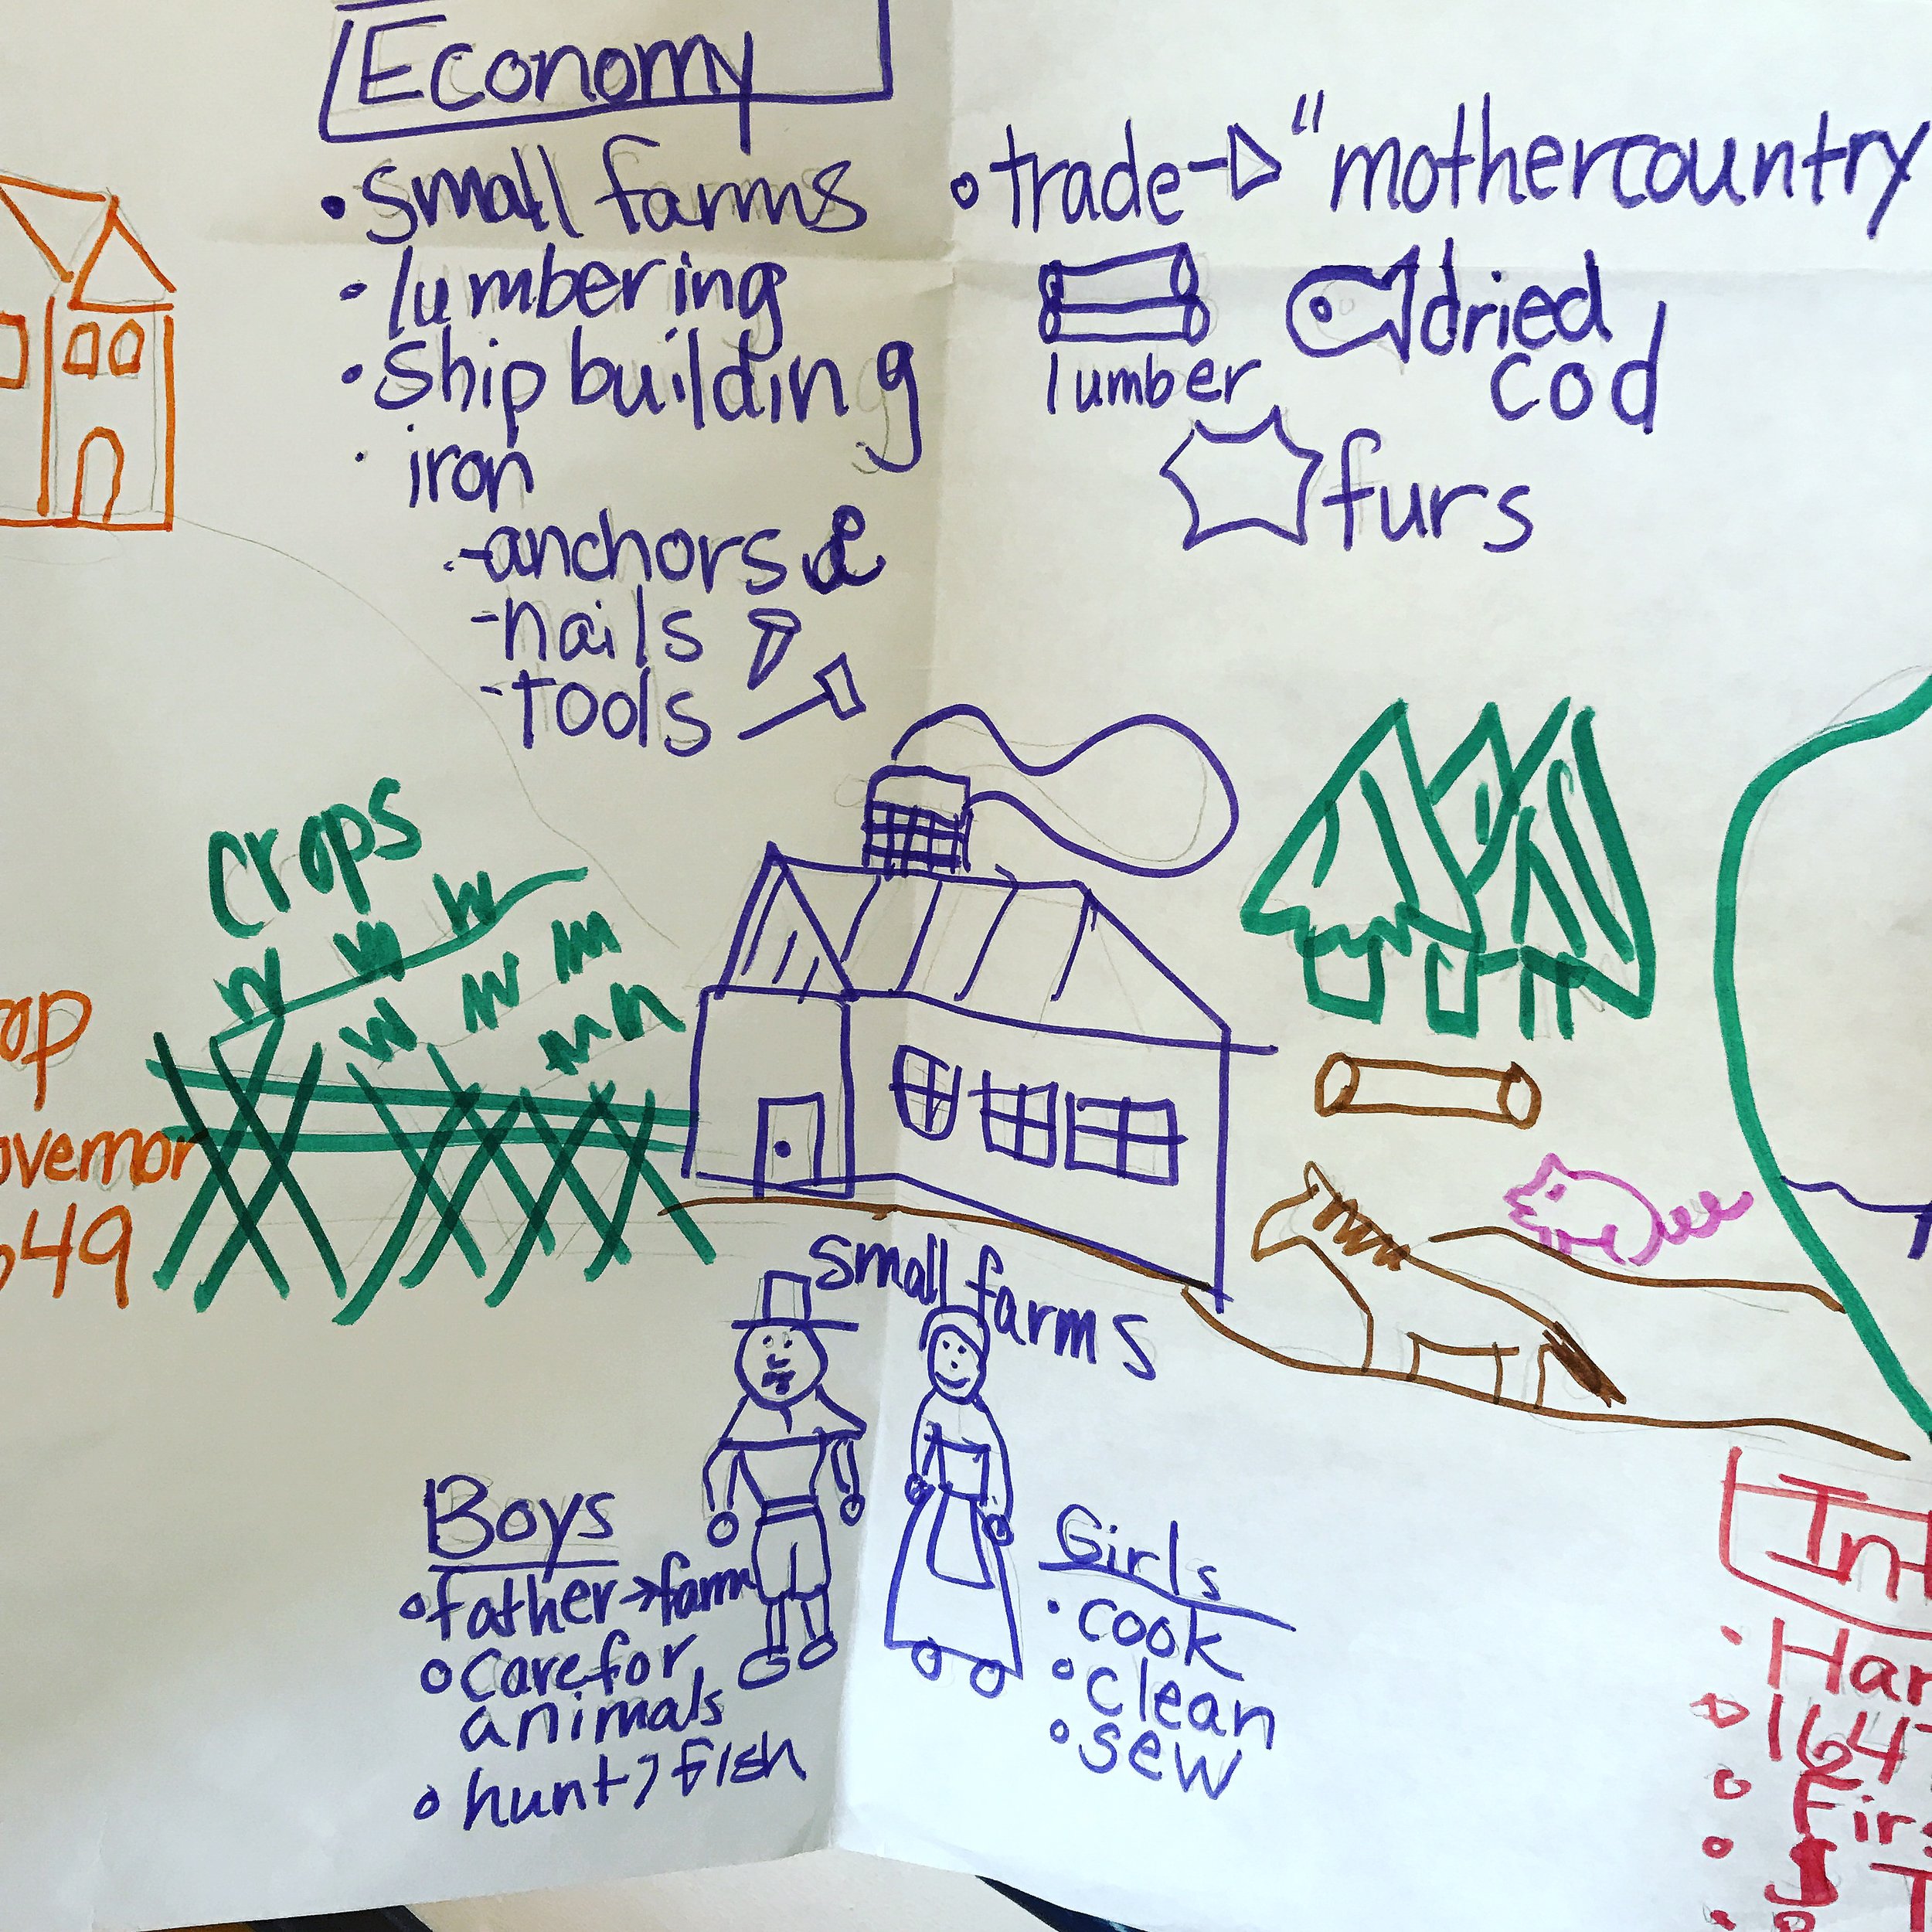 Economy
• small farms
• lumbering
• Ship building
• iron
- anchors
- nails
- tools
• trade → "mothercountry
lumber
dried
cod
furs
crops
op
overnor
649
small farms
Boys
• father → farm
• care for
animals
• hunt → fish
Girls
• cook
• clean
• sew
Int
• Har
164
• Firs